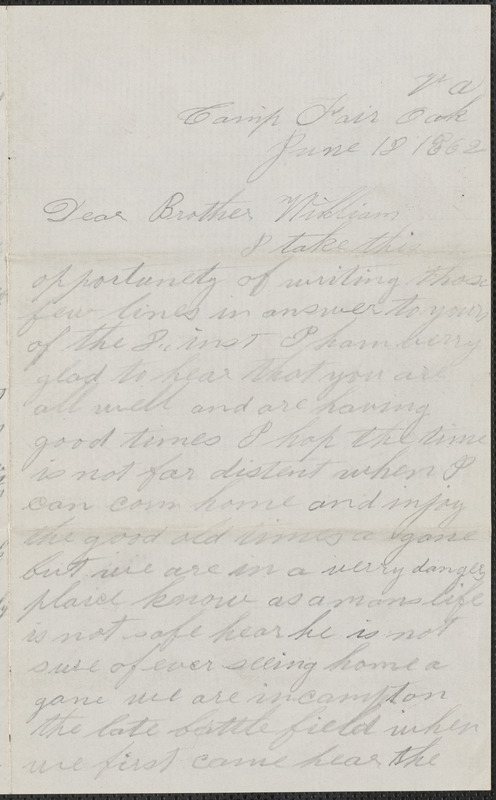 Va
Camp Fair Oak
June 18 1862
Dear Brother William
I take this
opportunety of writing those
few lines in answer to yours
of the 8, inst I ham verry
glad to hear that you are
all well and are having
good times I hop the time
is not far distent when I
can com home and injoy
the good old times a gane
but we are in a verry danger
place know as a mans life
is not safe hear he is not
sure of ever seeing home a
gane we are incampt on
the late battle field when
we first came hear the